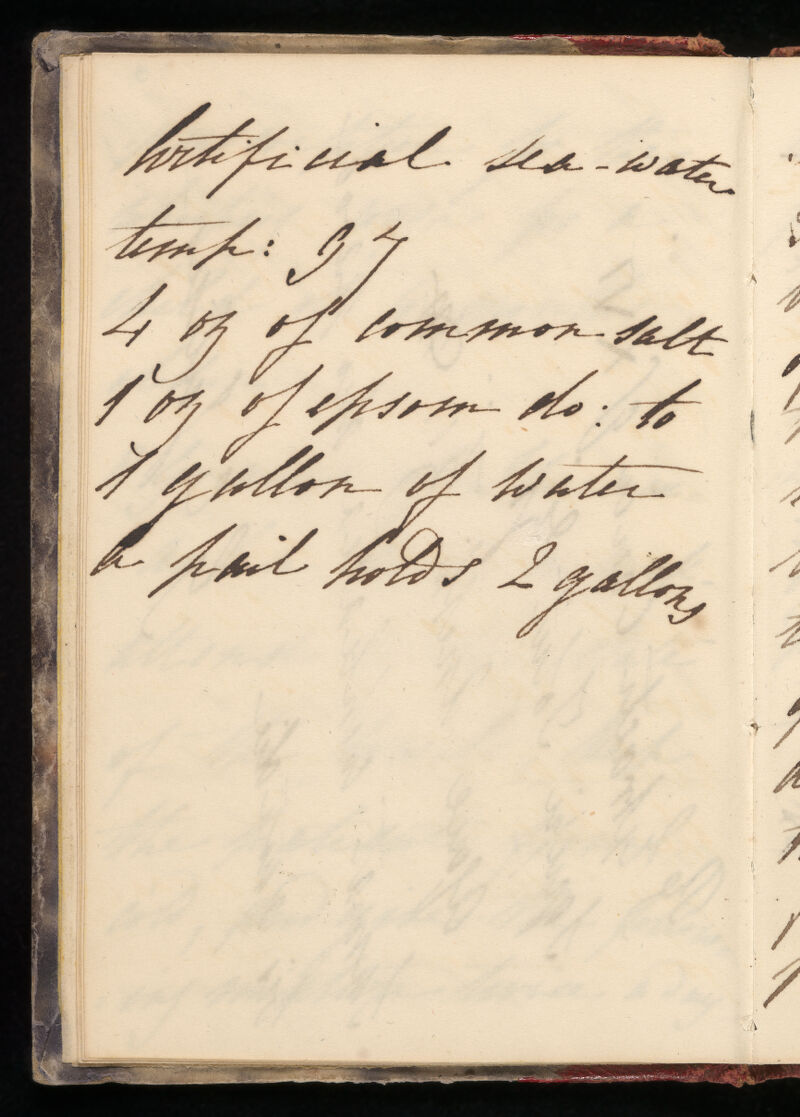 Artificial sea-water
temp: 97
4 oz of common salt
1 oz of epsom do: to
1 gallon of water
a pail holds 2 gallons